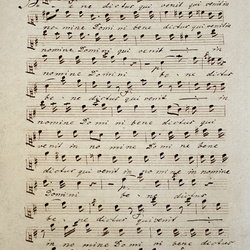 Be ne dictus qui venit qui venit in
nomine Domini qui venit in
nomine Domini be ne dictus
be ne dictus qui venit in
nomine Domi ni bene dictus qui
venit in nomine Domi ne bene
dictus qui venit in no mine in nomine
Domini be ne dictus
be ne dictus qui venit
in no mine Domi ni bene dictus